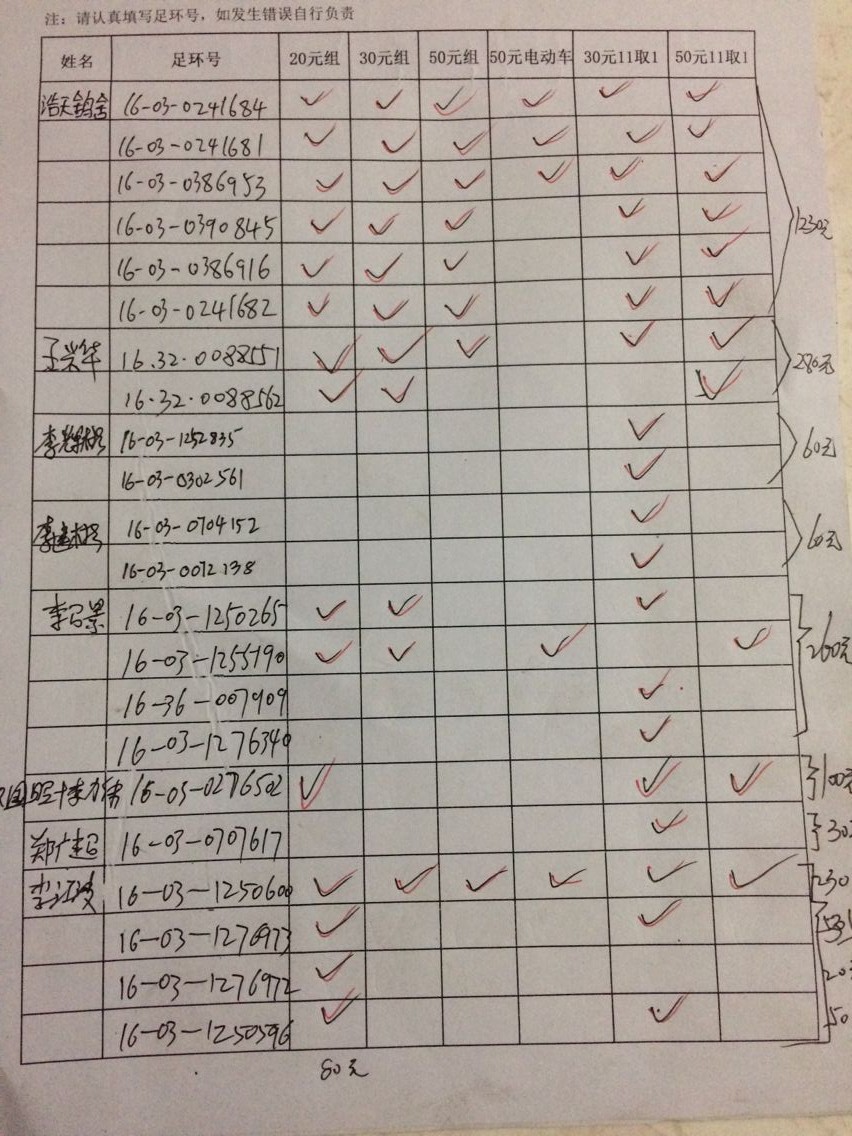 注：请认真填写足环号，如发生错误自行负责
姓名 足环号 20元组 30元组 50元组 50元电动车 30元11取1 50元11取1
浩天鸽舍 16-03-0241684 ✓ ✓ ✓ ✓ ✓ ✓
16-03-0241681 ✓ ✓ ✓ ✓ ✓ ✓
16-03-0386953 ✓ ✓ ✓ ✓ ✓ ✓
16-03-0390845 ✓ ✓ ✓ ✓ ✓ 1230元
16-03-0386916 ✓ ✓ ✓ ✓ ✓
16-03-0241682 ✓ ✓ ✓ ✓ ✓
王兴华 16.32.0088551 ✓ ✓ ✓ ✓ ✓ 280元
16.32.0088562 ✓ ✓ ✓
16-03-1252835 ✓ 60元
16-03-0302561 ✓
16-03-0704152 ✓ 60元
16-03-0072138 ✓
16-03-1250265 ✓ ✓ ✓
16-03-1255190 ✓ ✓ ✓ ✓ 260元
16-36-007909 ✓
16-03-1276340 ✓
✓ ✓ ✓ 100元
郑广超 16-03-0707617 ✓ 30
李江波 16-03-1250600 ✓ ✓ ✓ ✓ ✓ ✓ 230
16-03-1276973 ✓ ✓
16-03-1276972 ✓ 20
16-03-1250596 ✓ ✓ 50
80元